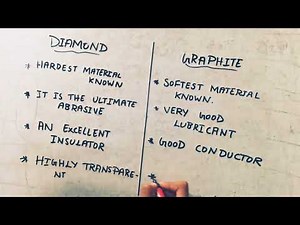 DIAMOND
* HARDEST MATERIAL
KNOWN
* IT IS THE ULTIMATE
ABRASIVE
* AN EXCELLENT
INSULATOR
* HIGHLY TRANSPARE-
NT
GRAPHITE
* SOFTEST MATERIAL
KNOWN.
* VERY GOOD
LUBRICANT
* GOOD CONDUCTOR
*